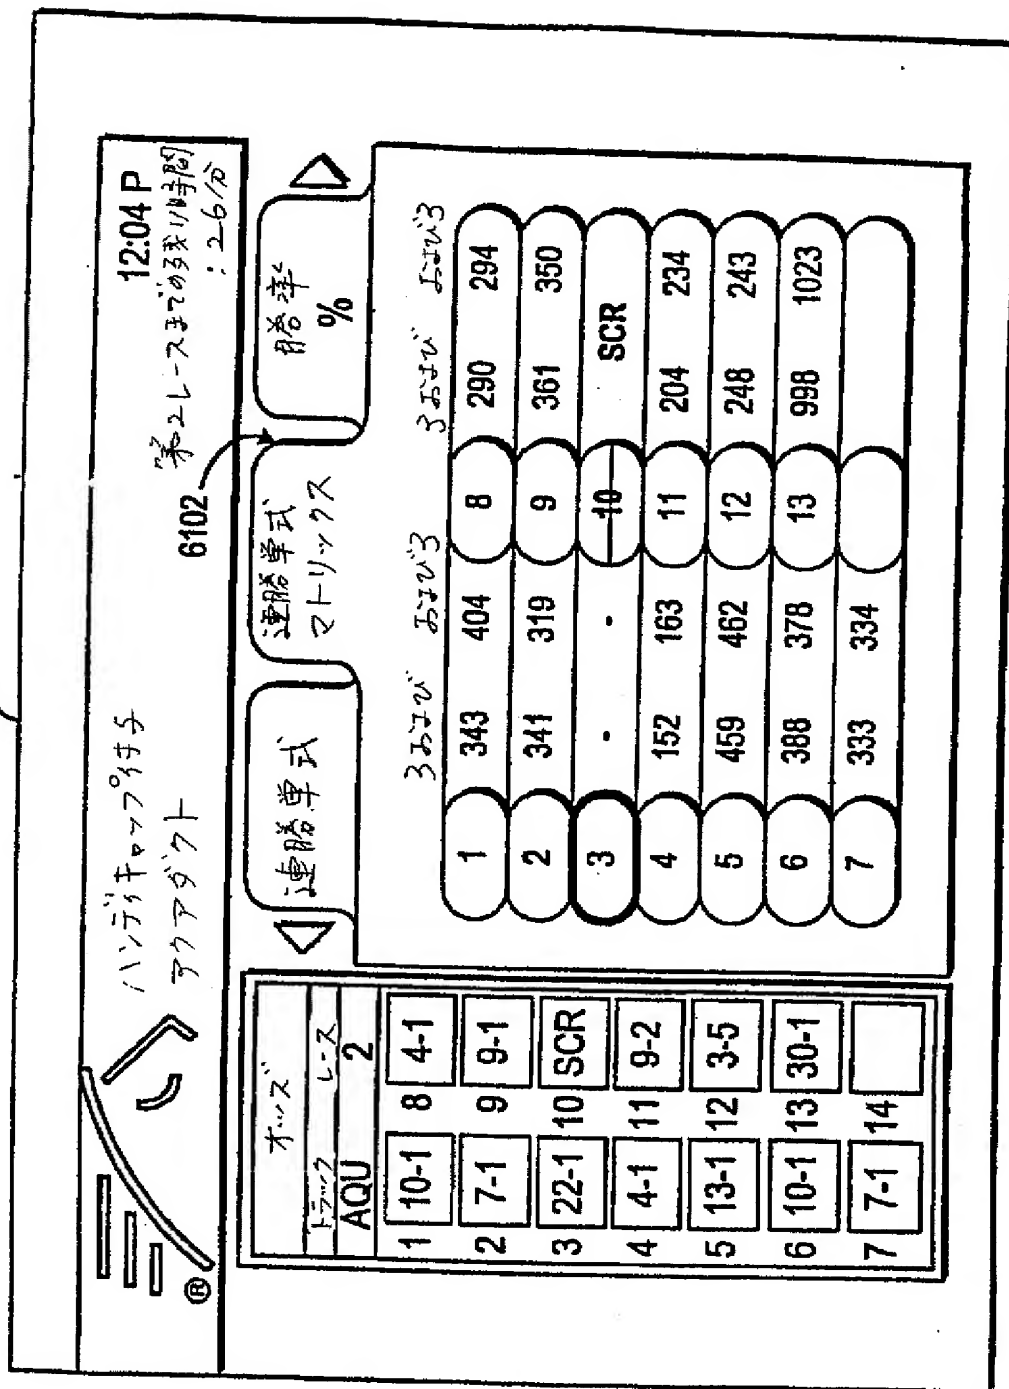 ハンディキャップ付き
アクアダクト
12:04 P
第2レースまでの残り時間
:26分
6102
連勝単式
連勝単式
マトリックス
勝率
%
オッズ
トラック レース
AQU 2
1 10-1 8 4-1
2 7-1 9 9-1
3 22-1 10 SCR
4 4-1 11 9-2
5 13-1 12 3-5
6 10-1 13 30-1
7 7-1 14
3および および3 3および および3
1 343 404 8 290 294
2 341 319 9 361 350
3 - - 10 SCR
4 152 163 11 204 234
5 459 462 12 248 243
6 388 378 13 998 1023
7 333 334
®